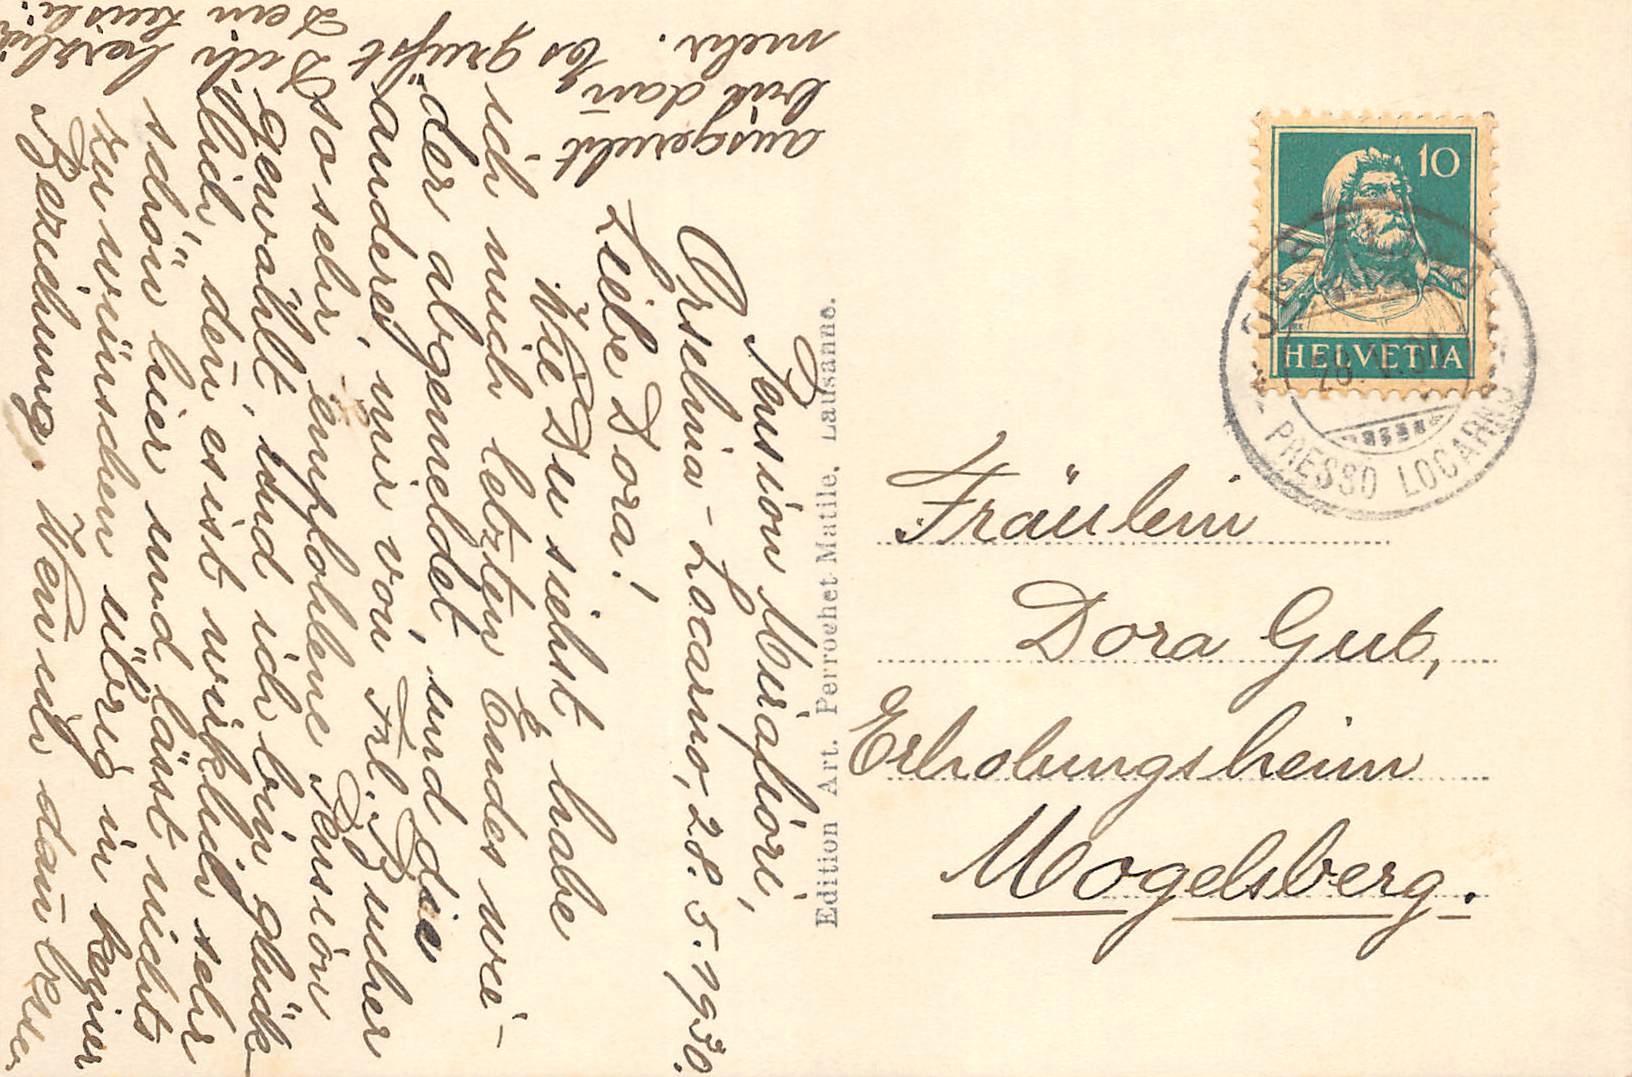 Pension Mirafiori,
Orselina - Locarno, 28. 5. 1930.
Liebe Dora!
Wie Du siehst habe
ich mich letzten Endes wie-
der abgemeldet, und die
andere, mir von Frl. Bucher
so sehr empfohlene Pension
gewählt, und ich bin glück-
lich, den̄ es ist wirklich sehr
schön hier und lässt nichts
zu wünschen übrig in keiner
Beziehung. Wen̄ ich dan̄
ausgeruht
bin dan̄
mehr. Es grüsst
Dich herzlich
Dein
Edition Art. Perrochet Matile, Lausanne.
10
HELVETIA
PRESSO LOCARNO
Fräulein
Dora Gut,
Erholungsheim
Mogelsberg.